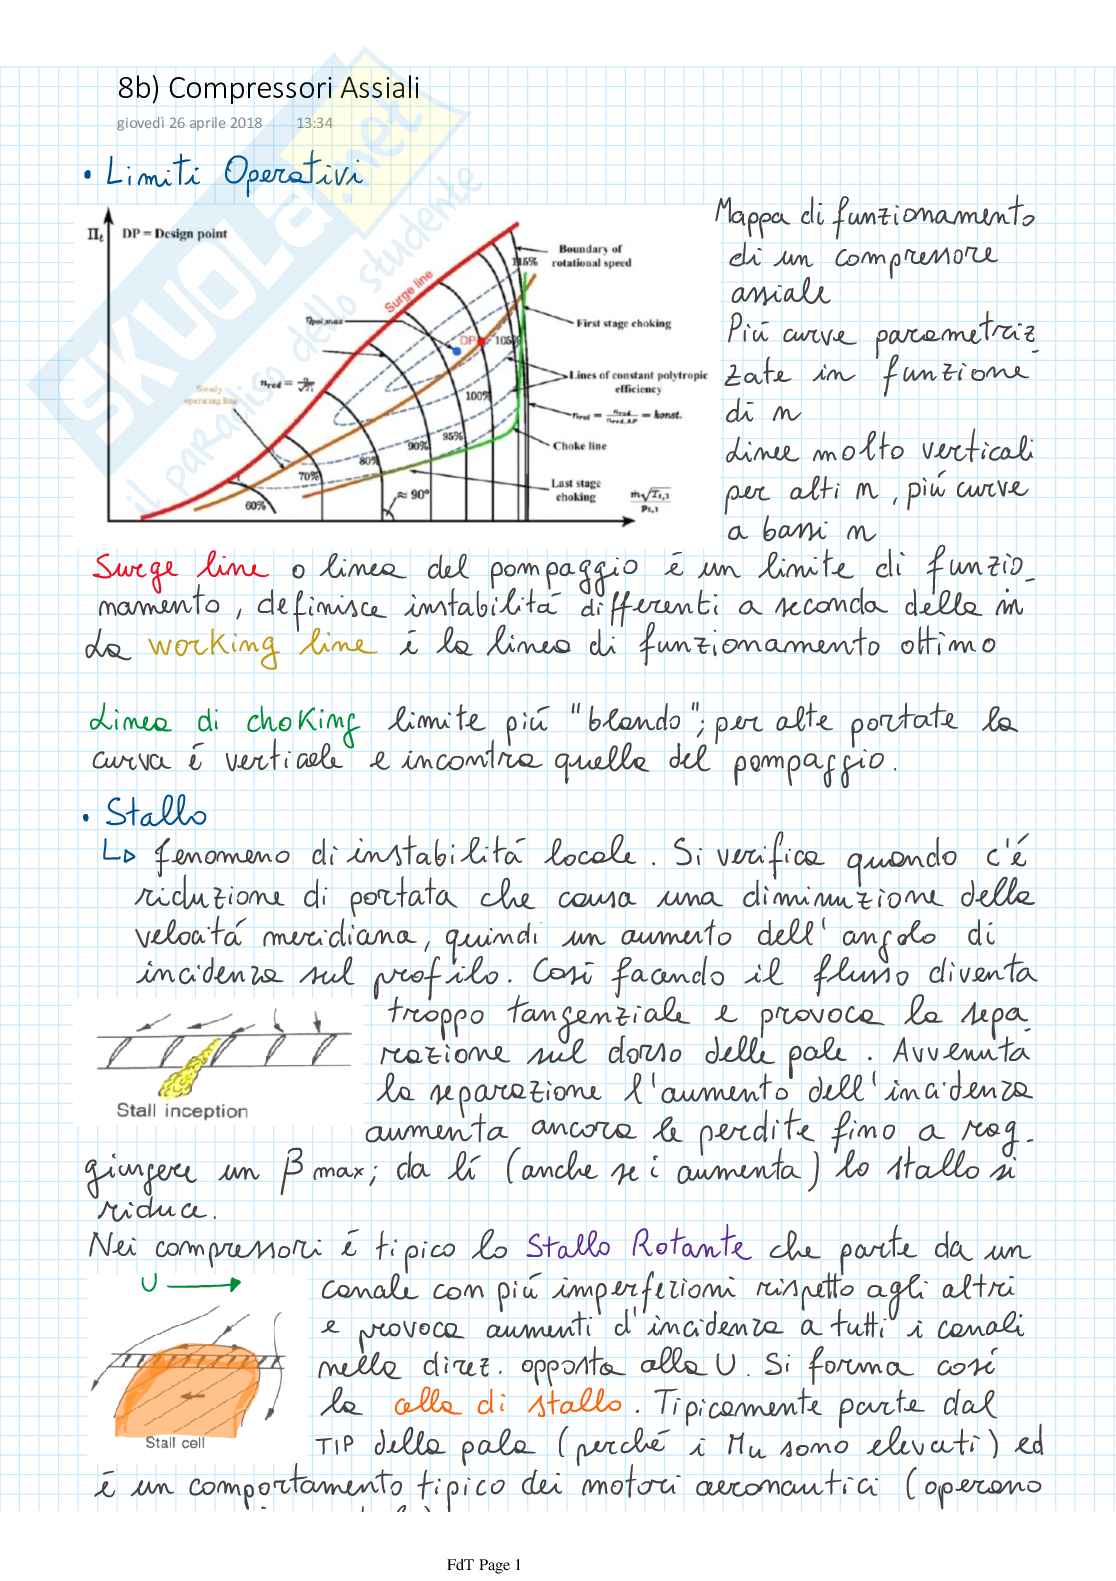 8b) Compressori Assiali
giovedì 26 aprile 2018 13:34
• Limiti Operativi
SKUOLA.net
il paradiso dello studente
Πt DP = Design point
Boundary of
rotational speed
115%
Surge line
First stage choking
ηpol,max
DP
105%
Lines of constant polytropic
efficiency
nred =
Steady
operating line
100%
nrel = = konst.
95%
90%
Choke line
80%
70%
Last stage
choking
≈ 90°
60%
ṁ√Tt,1
pt,1
Mappa di funzionamento
di un compressore
assiale
Piú curve parametriz
zate in funzione
di n
Linee molto verticali
per alti n, piú curve
a bassi n
Surge line o linea del pompaggio é un limite di funzio_
namento, definisce instabilitá differenti a seconda della ṁ
La working line é la linea di funzionamento ottimo
Linea di choking limite piú "blando"; per alte portate la
curva é verticale e incontra quella del pompaggio.
• Stallo
↳ fenomeno di instabilitá locale. Si verifica quando c'é
riduzione di portata che causa una diminuzione della
velocitá meridiana, quindi un aumento dell'angolo di
incidenza sul profilo. Cosí facendo il flusso diventa
troppo tangenziale e provoca la sepa_
razione sul dorso delle pale. Avvenuta
la separazione l'aumento dell'incidenza
aumenta ancora le perdite fino a rag-
giungere un β max; da lí (anche se i aumenta) lo stallo si
riduce.
Stall inception
Nei compressori é tipico lo Stallo Rotante che parte da un
canale con piú imperfezioni rispetto agli altri
e provoca aumenti d'incidenza a tutti i canali
nella direz. opposta alla U. Si forma cosí
la cella di stallo. Tipicamente parte dal
TIP della pala (perché i Mu sono elevati) ed
é un comportamento tipico dei motori aeronautici (operano
U
Stall cell
FdT Page 1